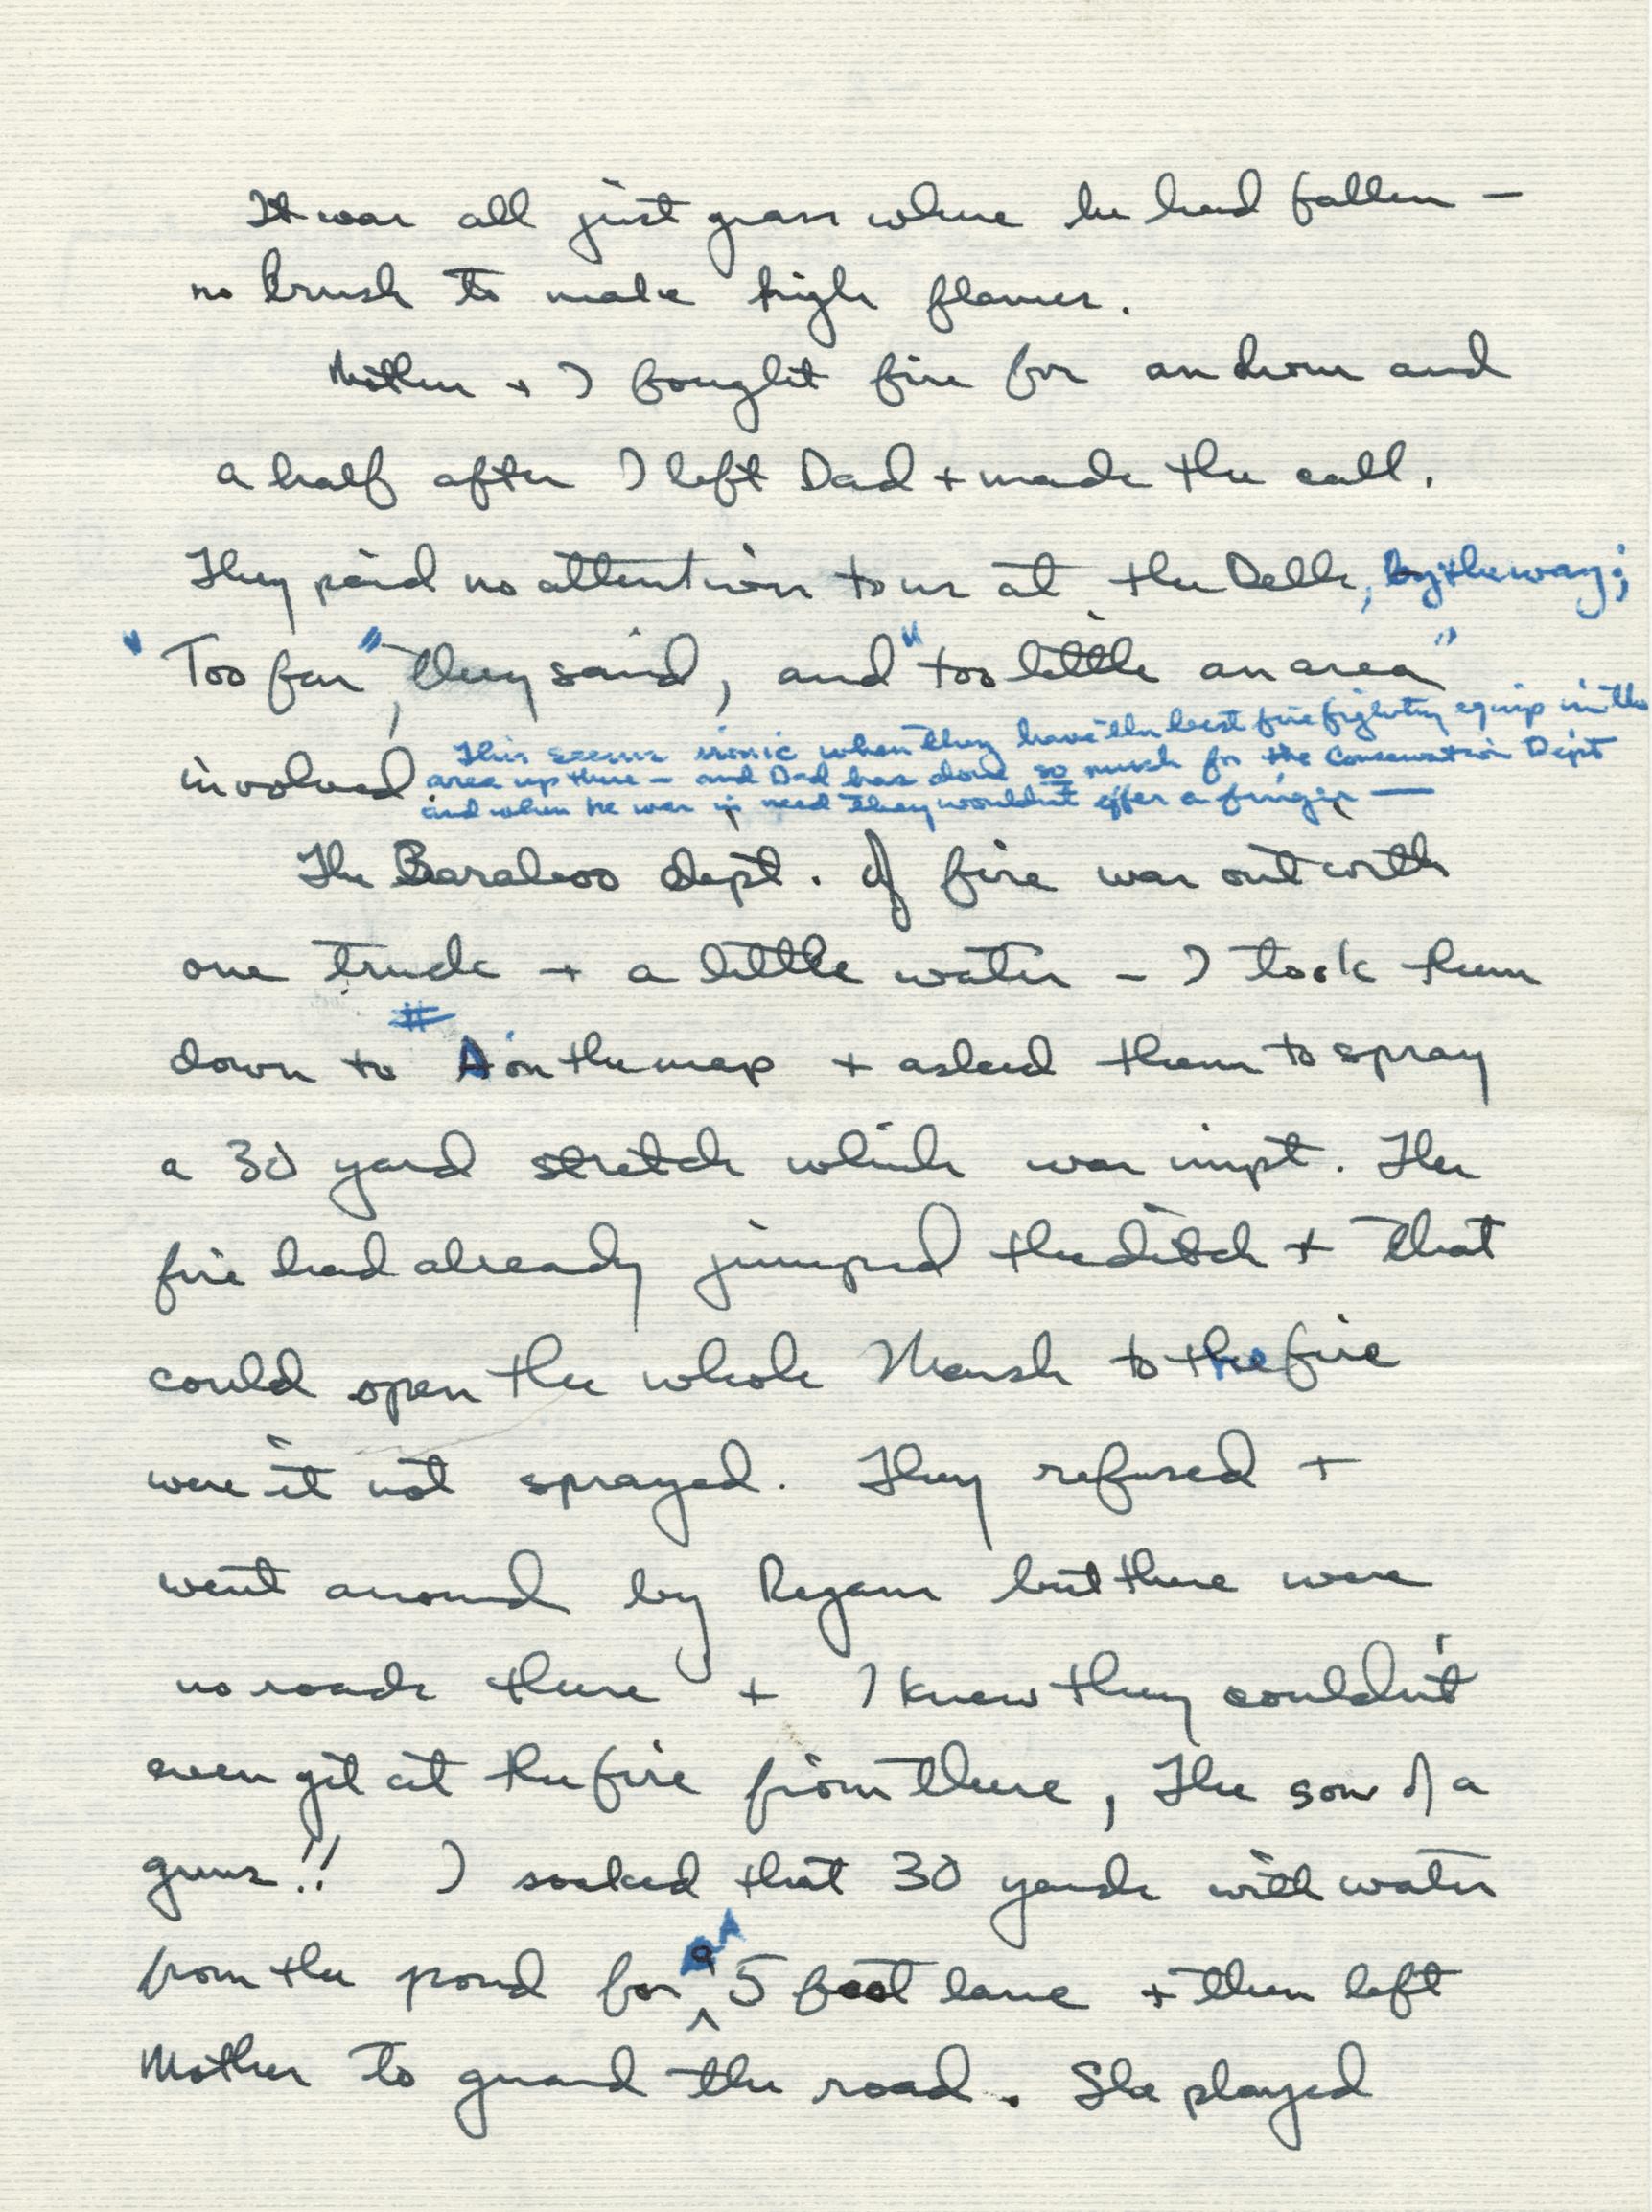 It was all just grass where he had fallen —
no brush to make high flames.
Mother + I fought fire for an hour and
a half after I left Dad + made the call.
They paid no attention to us at the Dells, by the way;
"Too far", they said, and "too little an area"
involved.
This seems ironic when they have the best fire fighting equip in the
area up there — and Dad has done so much for the Conservation Dept
and when he was in need they wouldn't offer a finger —
The Baraboo dept. of fire was out with
one truck + a little water – I took them
down to # A on the map + asked them to spray
a 30 yard stretch which was impt. The
fire had already jumped the ditch + that
could open the whole Marsh to the fire
were it not sprayed. They refused +
went around by Regans but there were
no roads there + I knew they couldn't
even get at the fire from there, The sons of a
guns!! I soaked that 30 yards with water
from the pond for a 5 foot lane + then left
Mother to guard the road. She played